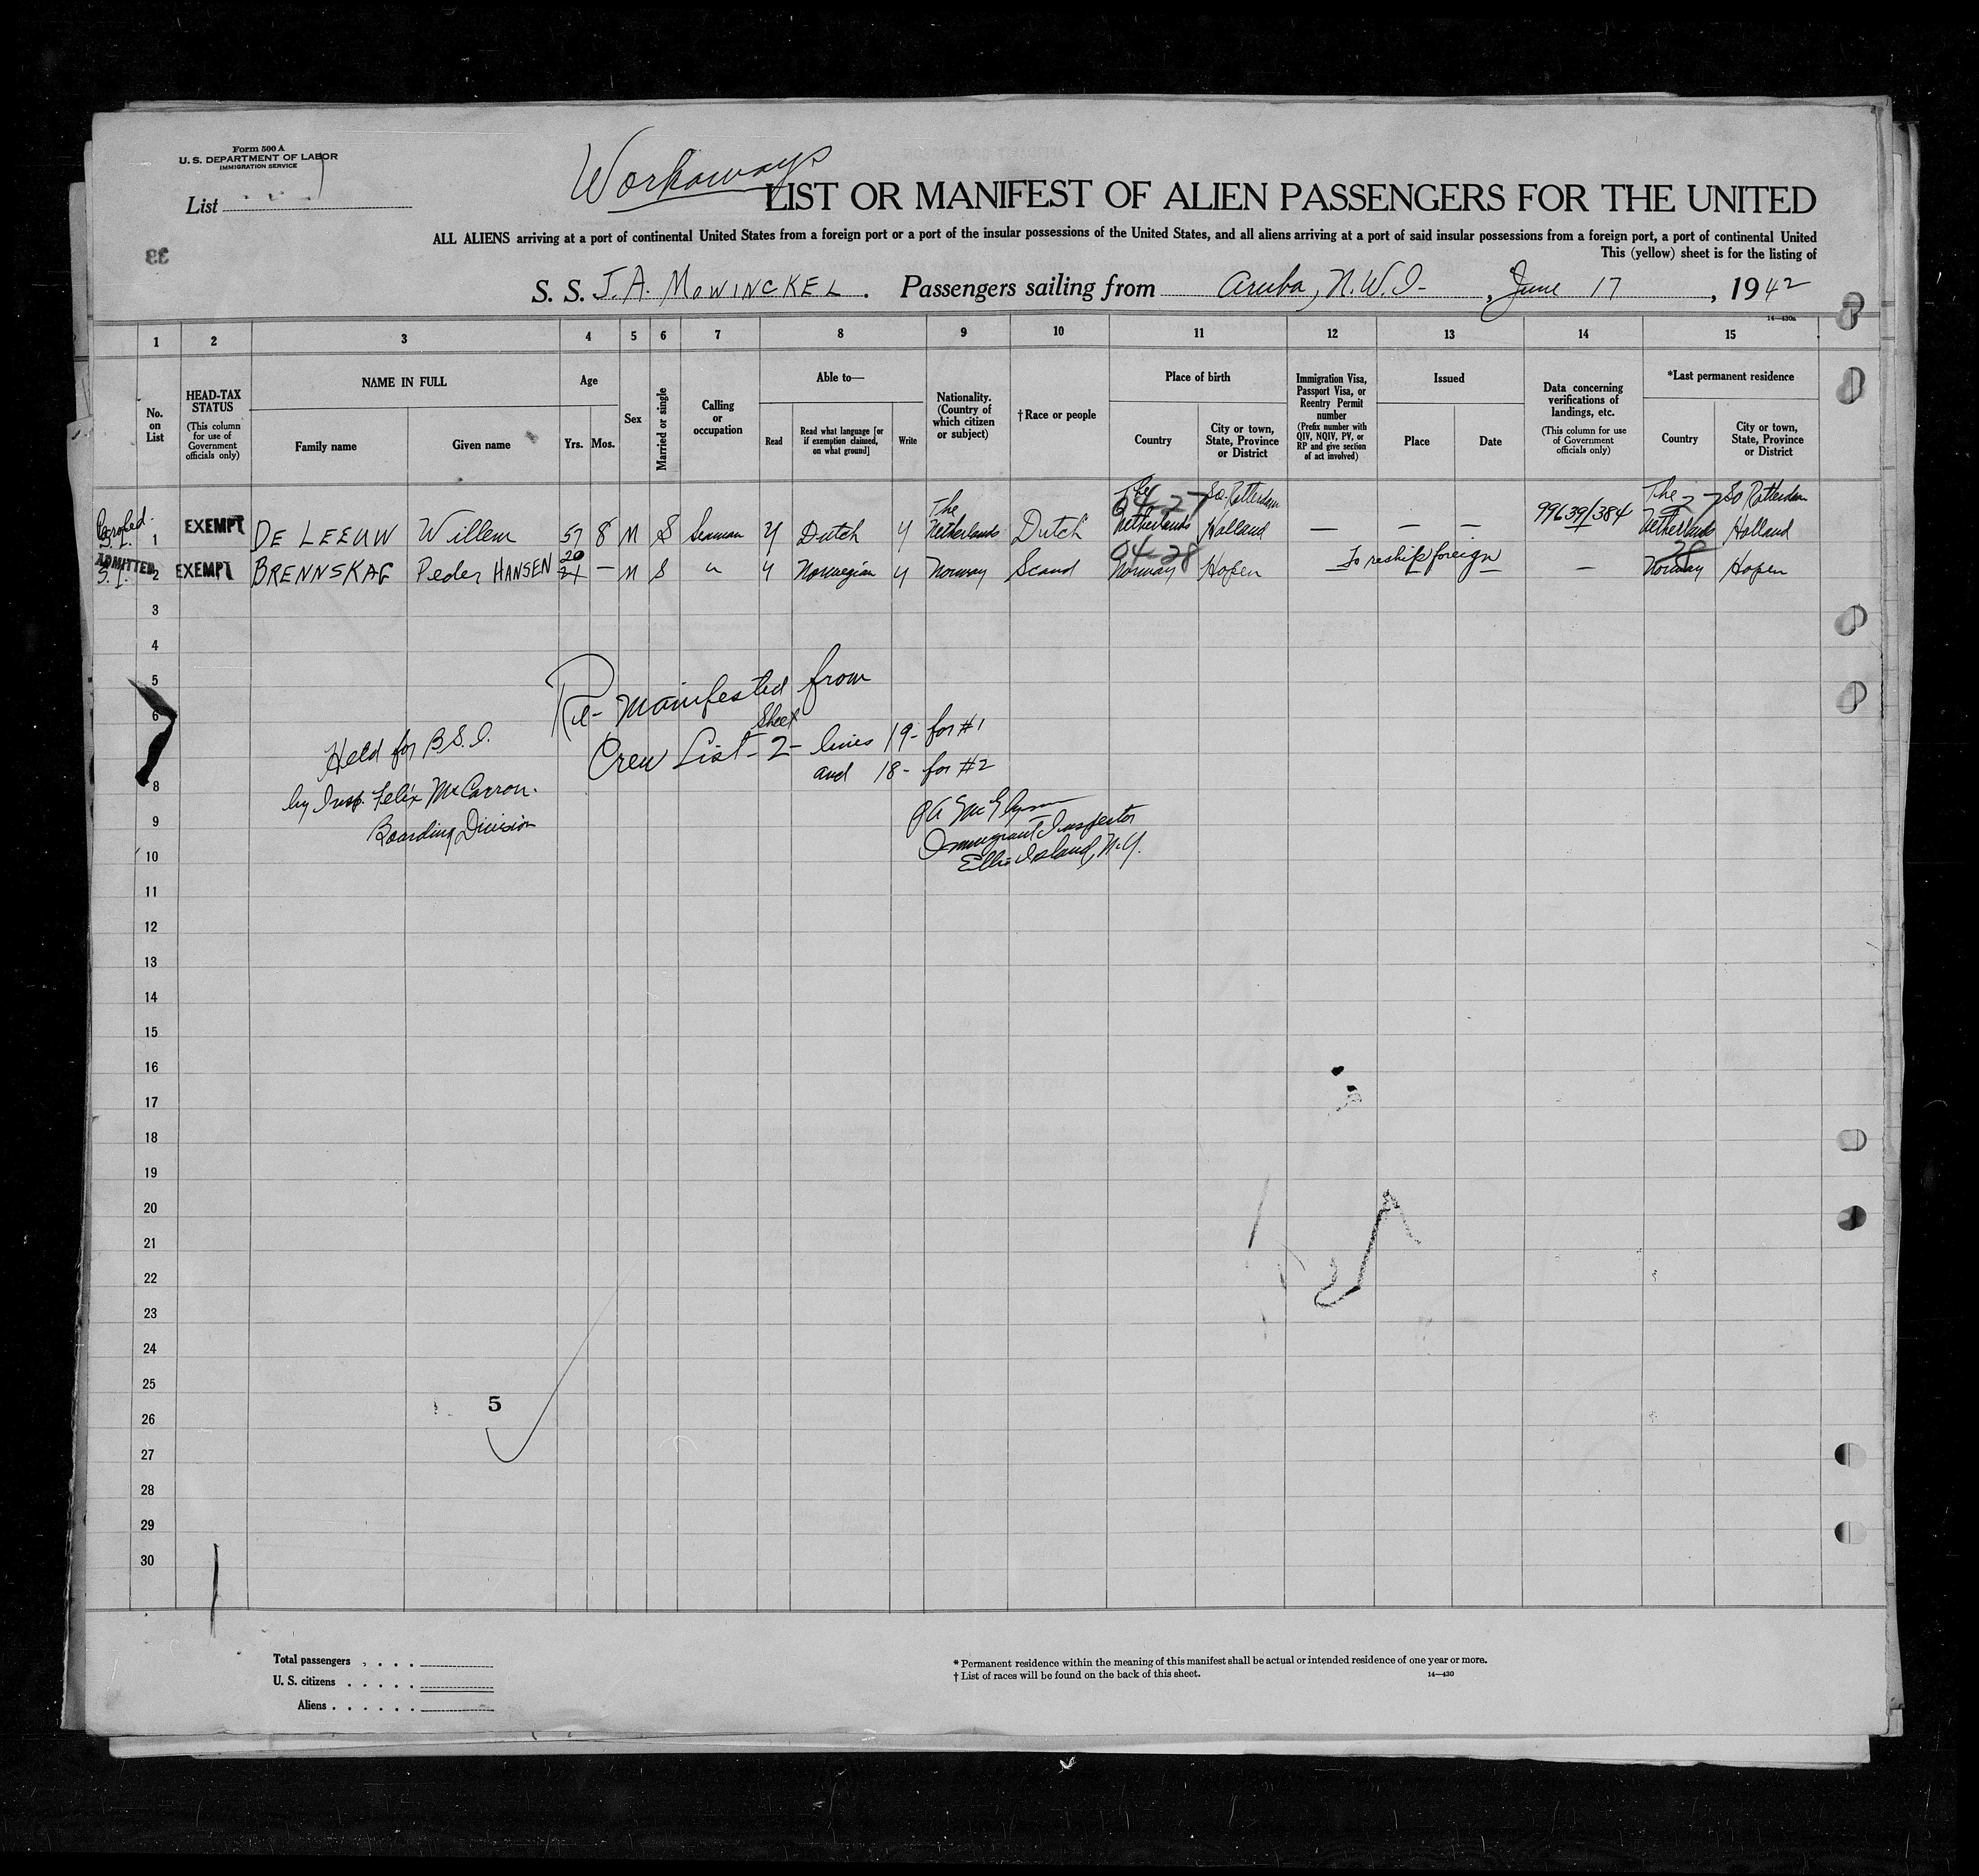 Form 500 A
U. S. DEPARTMENT OF LABOR
IMMIGRATION SERVICE
List
33
Workaways
LIST OR MANIFEST OF ALIEN PASSENGERS FOR THE UNITED
ALL ALIENS arriving at a port of continental United States from a foreign port or a port of the insular possessions of the United States, and all aliens arriving at a port of said insular possessions from a foreign port, a port of continental United
This (yellow) sheet is for the listing of
S. S. J. A. MOWINCKEL. Passengers sailing from Aruba, N.W.I. , June 17 , 1942
14—430a
1 2 3 4 5 6 7 8 9 10 11 12 13 14 15
No. on List
HEAD-TAX STATUS (This column for use of Government officials only)
NAME IN FULL
Family name
Given name
Age
Yrs. Mos.
Sex
Married or single
Calling or occupation
Able to—
Read
Read what language [or if exemption claimed, on what ground]
Write
Nationality. (Country of which citizen or subject)
†Race or people
Place of birth
Country
City or town, State, Province or District
Immigration Visa, Passport Visa, or Reentry Permit number (Prefix number with QIV, NQIV, PV, or RP and give section of act involved)
Issued
Place
Date
Data concerning verifications of landings, etc. (This column for use of Government officials only)
*Last permanent residence
Country
City or town, State, Province or District
Paroled S. I. 1 EXEMPT DE LEEUW Willem 57 8 M S Seaman y Dutch y The Netherlands Dutch The Netherlands 04-27 So. Rotterdam Holland — — — 99639/384 The Netherlands 27 So Rotterdam Holland
ADMITTED S. I. 2 EXEMPT BRENNSKAG Peder HANSEN 20 21 — M S " y Norwegian y Norway Scand 04-28 Norway Hopen To reship foreign — 28 Norway Hopen
3
4
5
6
8
9
10
11
12
13
14
15
16
17
18
19
20
21
22
23
24
25
26
27
28
29
30
Re-manifested from
Crew List - Sheet 2 - lines 19 - for #1
and 18 - for #2
Held for B.S.I.
by Insp. Felix McCarron.
Boarding Division
Immigrant Inspector
Ellis Island, N.Y.
5
Total passengers
U. S. citizens
Aliens
* Permanent residence within the meaning of this manifest shall be actual or intended residence of one year or more.
† List of races will be found on the back of this sheet.
14—430